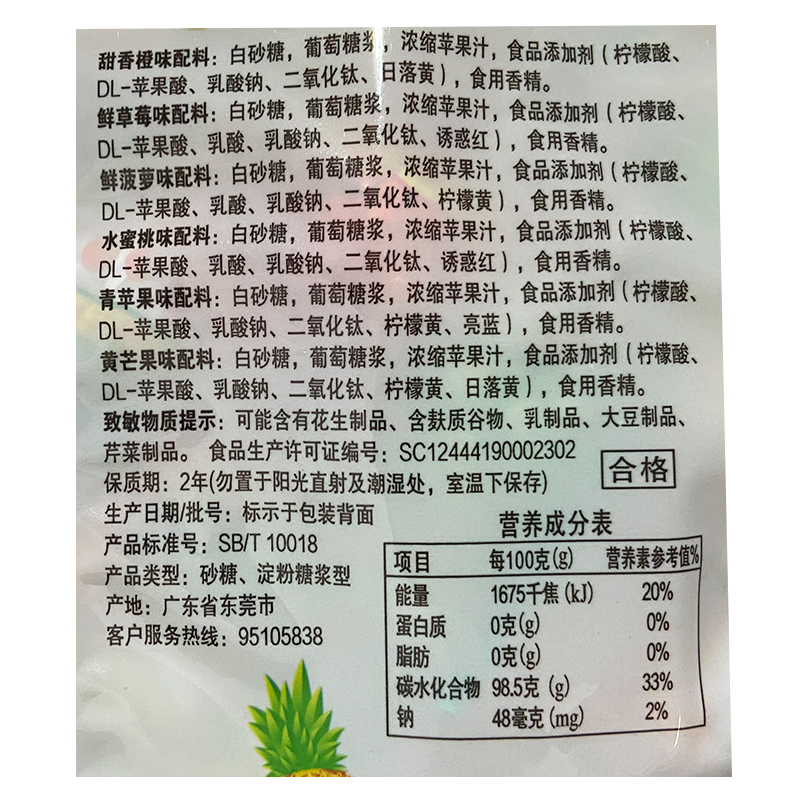 甜香橙味配料：白砂糖，葡萄糖浆，浓缩苹果汁，食品添加剂（柠檬酸、
DL-苹果酸、乳酸钠、二氧化钛、日落黄），食用香精。
鲜草莓味配料：白砂糖，葡萄糖浆，浓缩苹果汁，食品添加剂（柠檬酸、
DL-苹果酸、乳酸、乳酸钠、二氧化钛、诱惑红），食用香精。
鲜菠萝味配料：白砂糖，葡萄糖浆，浓缩苹果汁，食品添加剂（柠檬酸、
DL-苹果酸、乳酸、乳酸钠、二氧化钛、柠檬黄），食用香精。
水蜜桃味配料：白砂糖，葡萄糖浆，浓缩苹果汁，食品添加剂（柠檬酸、
DL-苹果酸、乳酸、乳酸钠、二氧化钛、诱惑红），食用香精。
青苹果味配料：白砂糖，葡萄糖浆，浓缩苹果汁，食品添加剂（柠檬酸、
DL-苹果酸、乳酸钠、二氧化钛、柠檬黄、亮蓝），食用香精。
黄芒果味配料：白砂糖，葡萄糖浆，浓缩苹果汁，食品添加剂（柠檬酸、
DL-苹果酸、乳酸钠、二氧化钛、柠檬黄、日落黄），食用香精。
致敏物质提示：可能含有花生制品、含麸质谷物、乳制品、大豆制品、
芹菜制品。 食品生产许可证编号：SC12444190002302
保质期：2年(勿置于阳光直射及潮湿处，室温下保存)
合格
生产日期/批号：标示于包装背面
产品标准号：SB/T 10018
产品类型：砂糖、淀粉糖浆型
产地：广东省东莞市
客户服务热线：95105838
营养成分表
项目 每100克(g) 营养素参考值%
能量 1675千焦(kJ) 20%
蛋白质 0克(g) 0%
脂肪 0克(g) 0%
碳水化合物 98.5克(g) 33%
钠 48毫克(mg) 2%